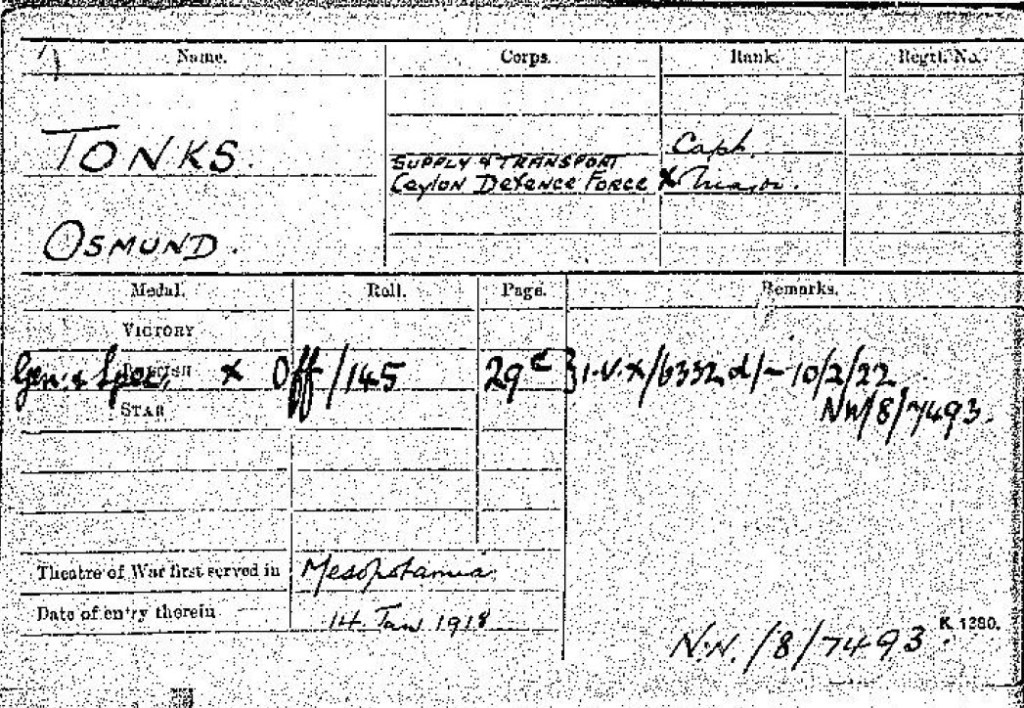 Name. Corps. Rank. Regtl. No.
TONKS.
Capt.
SUPPLY & TRANSPORT
Ceylon Defence Force x Major.
OSMUND.
Medal. Roll. Page. Remarks.
VICTORY
BRITISH
Gen. & Spec. x Off/145 29
10/2/22
NW/8/7493.
STAR
Theatre of War first served in Mesopotamia
Date of entry therein 14 Jan 1918
K 1380.
N.W./8/7493.